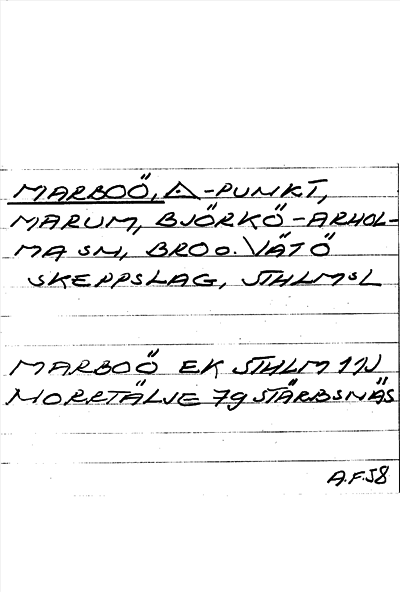 MARBOÖ, △-PUNKT,
MARUM, BJÖRKÖ-ARHOL-
MA SN, BRO O. VÄTÖ
SKEPPSLAG, STHLMSL
MARBOÖ EK STHLM 11J
NORRTÄLJE 79 STÄRBSNÄS
A.F.58